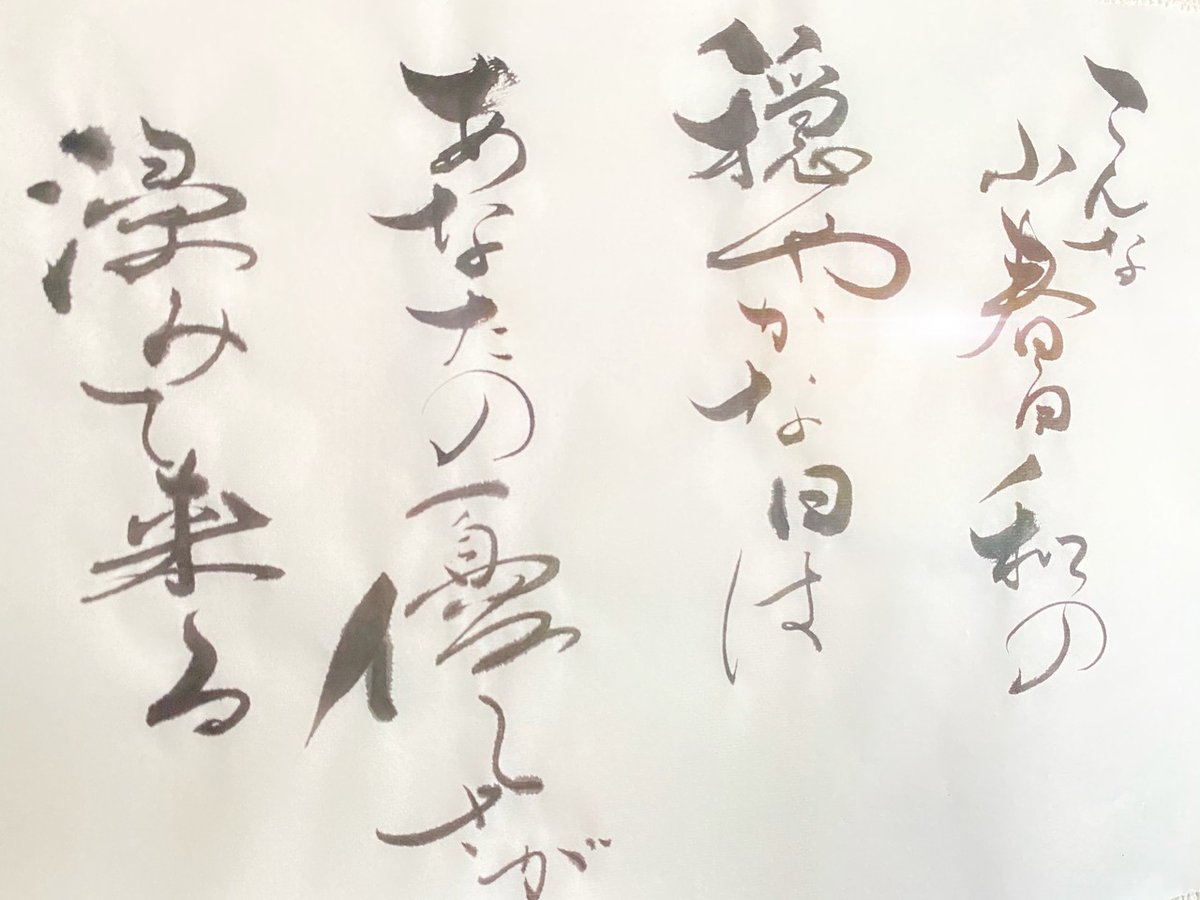 こんな
小春日和の
穏やかな日は
あなたの優しさが
浸みて来る